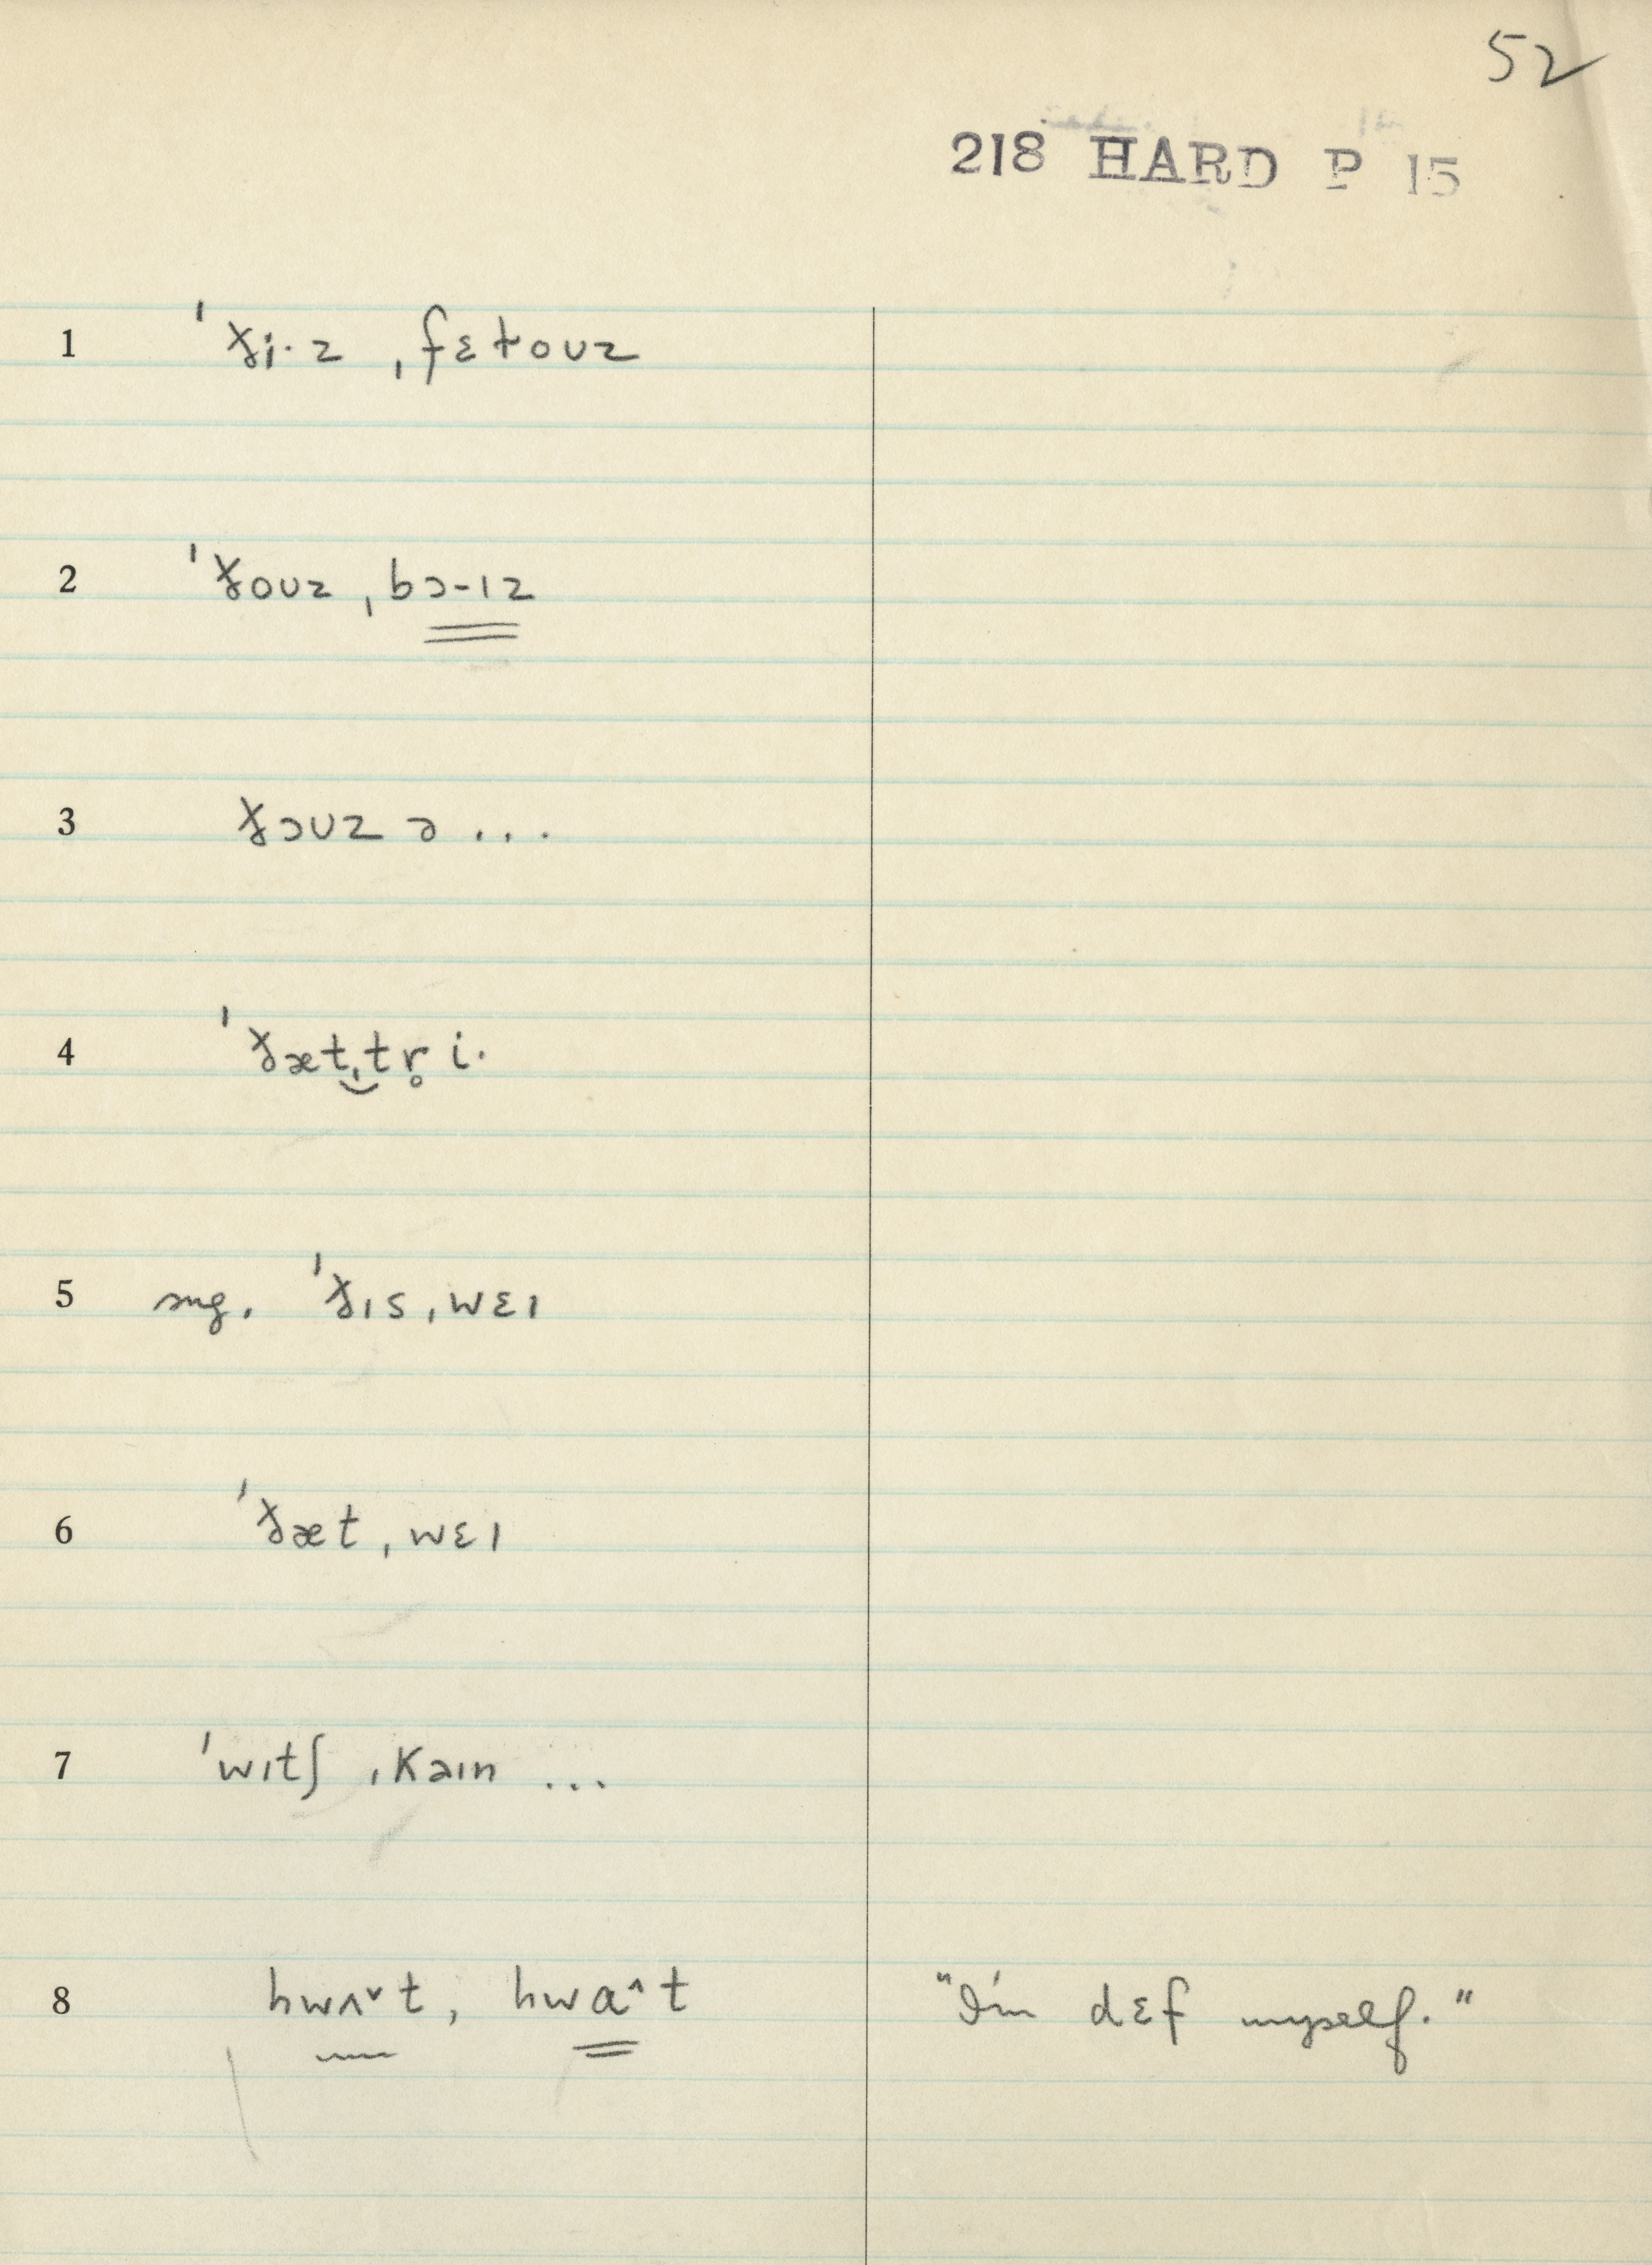 52
218 HARD P 15
1 ˈði·z ˌfɛɫoʊz
2 ˈðoʊz ˌbɔ-ɪz
3 ðɔʊz ə ...
4 ˈðæt‿ˌtr̥i·
5 sng. ˈðɪs ˌwɛɪ
6 ˈðæt ˌwɛɪ
7 ˈwɪtʃ ˌkaɪn ...
8 hwʌ˅t, hwɑ^t "I'm dɛf myself."